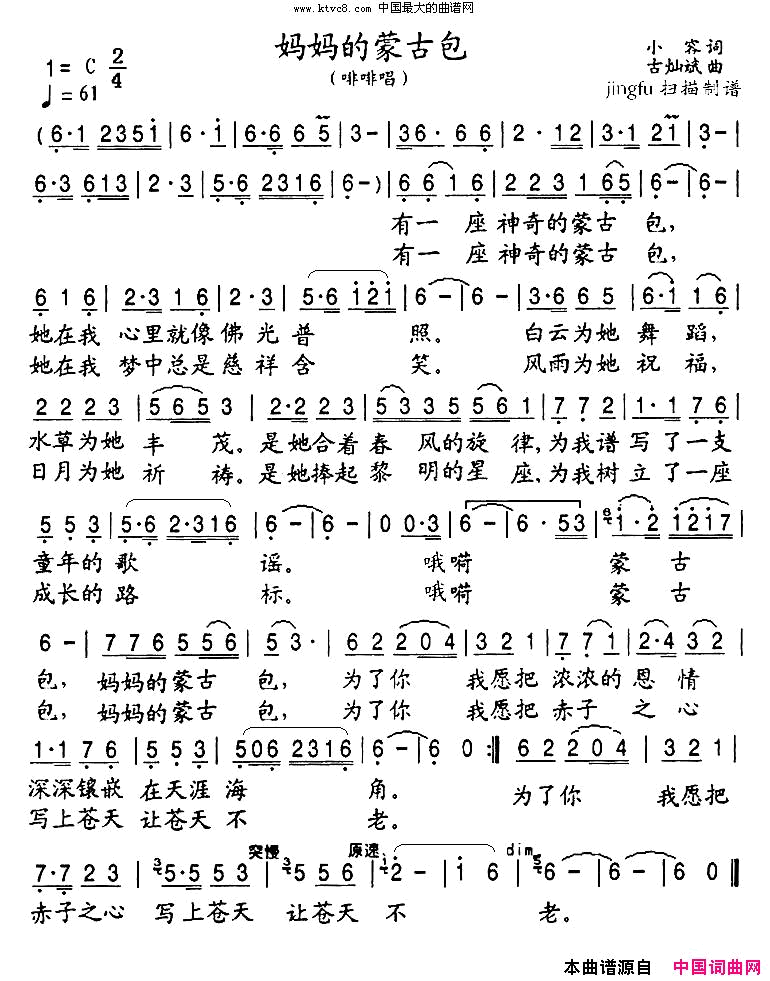 www.ktvc8.com 中国最大的曲谱网
妈妈的蒙古包
(啡啡唱)
1= C 2/4
♩=61
小容词
古灿斌曲
jingfu 扫描制谱
(6·1 2351 | 6·1 | 6·6 6 5 | 3- | 36· 6 6 | 2· 12 | 3·1 2 1 | 3- |
6·3 613 | 2·3 | 5·6 2316 | 6-) | 6 6 1 6 | 2 2 3 1 6 5 | 6- | 6- |
有一座神奇的蒙古包,
有一座神奇的蒙古包,
6 1 6 | 2·3 1 6 | 2·3 | 5·6 1 2 1 | 6- | 6- | 3·6 6 5 | 6 1 1 6 |
她在我心里就像佛光普照。白云为她舞蹈,
她在我梦中总是慈祥含笑。风雨为她祝福,
2 2 2 3 | 5 6 5 3 | 2·2 2 3 | 5 3 3 5 5 6 1 | 2·1 2 | 1·1 7 6 |
水草为她丰茂。是她合着春风的旋律,为我谱写了一支
日月为她祈祷。是她捧起黎明的星座,为我树立了一座
5 5 3 | 5·6 2·316 | 6- | 6- | 0 0·3 | 6- | 6· 53 | 1·2 1217 |
童年的歌谣。哦嗬蒙古
成长的路标。哦嗬蒙古
6- | 7 7 6 5 5 6 | 5 3· | 6 2 2 0 4 | 3 2 1 | 7 7 1 | 2·4 3 2 |
包,妈妈的蒙古包,为了你我愿把浓浓的恩情
包,妈妈的蒙古包,为了你我愿把赤子之心
1·1 7 6 | 5 5·5 | 506 2316 | 6- | 6 0 :| 6 2 2 0 4 | 3 2 1 |
深深镶嵌在天涯海角。为了你我愿把
写上苍天让苍天不老。
突慢 原速 dim
7·7 2 3 | 5·5 5 3 | 5 5 6 | 2- | 1 6 | 6- | 6- | 6 0 ||
赤子之心写上苍天让苍天不老。
本曲谱源自 中国词曲网